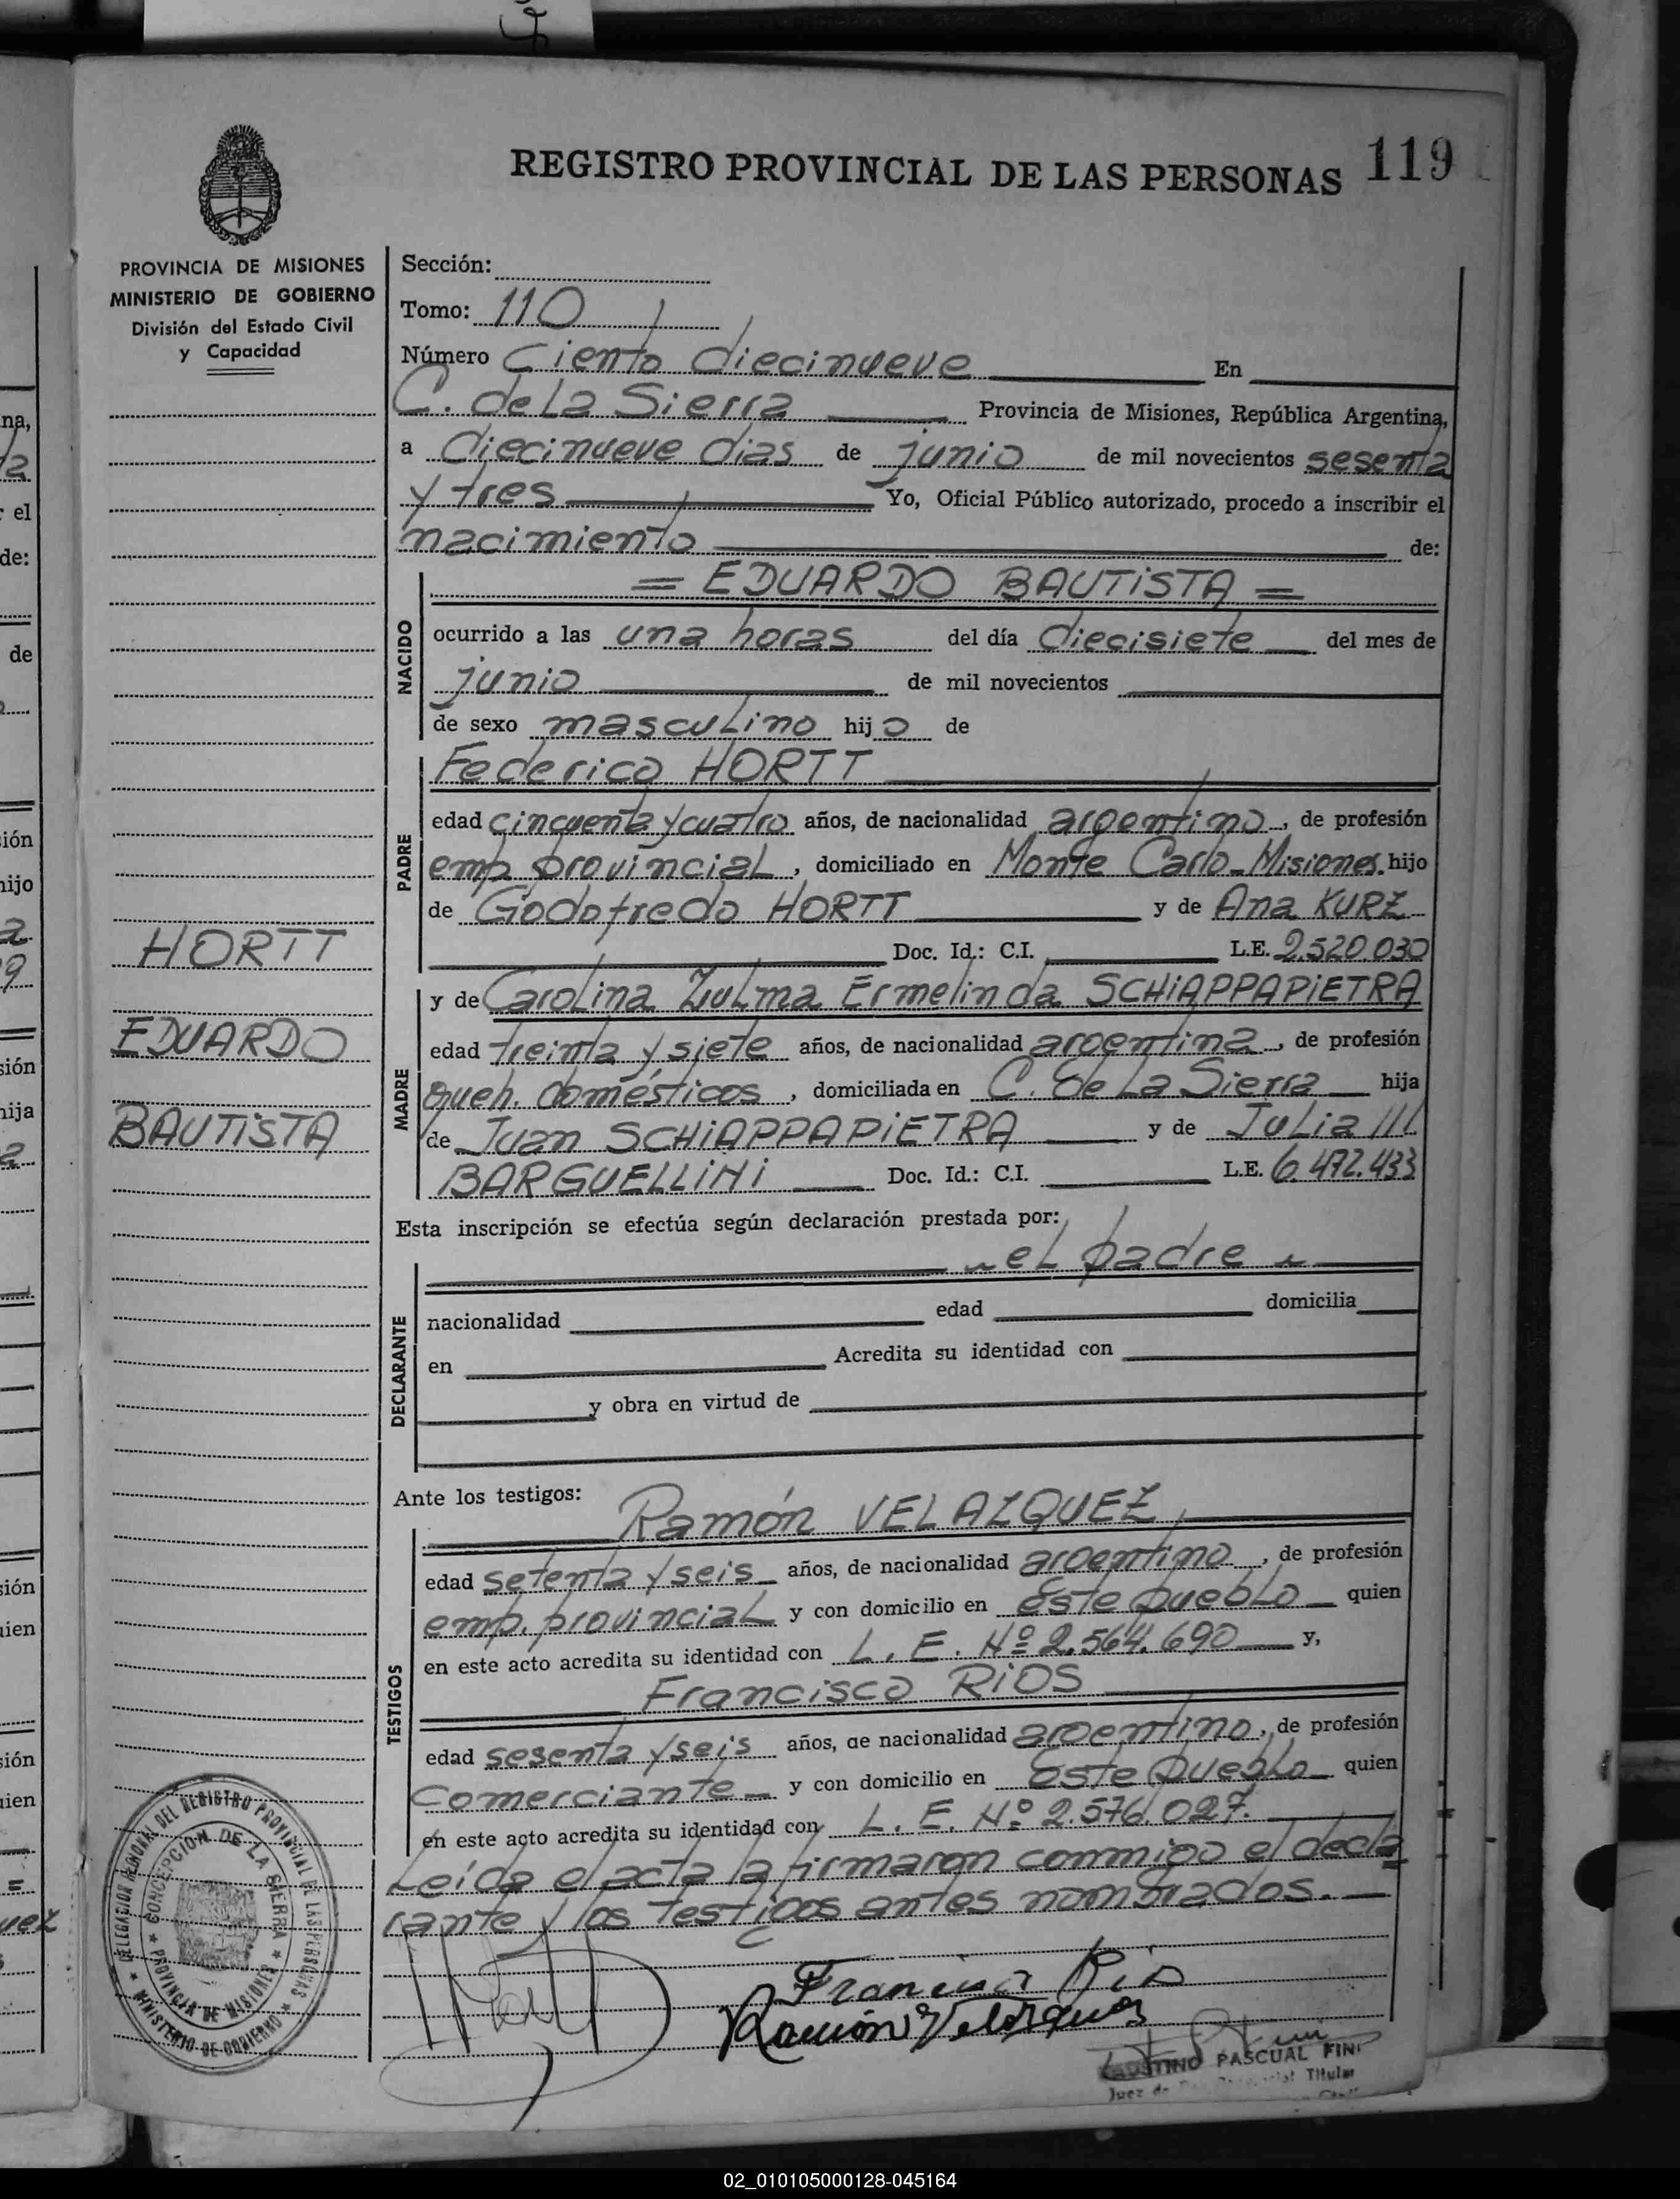 REGISTRO PROVINCIAL DE LAS PERSONAS 119
PROVINCIA DE MISIONES
MINISTERIO DE GOBIERNO
División del Estado Civil
y Capacidad
HORTT
EDUARDO
BAUTISTA
Sección:
Tomo: 110
Número Ciento diecinueve En
C. de La Sierra Provincia de Misiones, República Argentina,
a diecinueve dias de junio de mil novecientos sesenta
y tres Yo, Oficial Público autorizado, procedo a inscribir el
nacimiento de:
NACIDO
= EDUARDO BAUTISTA =
ocurrido a las una horas del día diecisiete del mes de
junio de mil novecientos
de sexo masculino hijo de
PADRE
Federico HORTT
edad cincuenta y cuatro años, de nacionalidad argentino, de profesión
emp. provincial, domiciliado en Monte Carlo-Misiones. hijo
de Godofredo HORTT y de Ana KURZ
Doc. Id.: C.I. L.E. 2.520.030
MADRE
y de Carolina Zulma Ermelinda SCHIAPPAPIETRA
edad treinta y siete años, de nacionalidad argentina, de profesión
queh. domésticos, domiciliada en C. de La Sierra hija
de Juan SCHIAPPAPIETRA y de Julia ///
BARGUELLINI Doc. Id.: C.I. L.E. 6.472.433
Esta inscripción se efectúa según declaración prestada por:
el padre
DECLARANTE
nacionalidad edad domicilia
en Acredita su identidad con
y obra en virtud de
Ante los testigos:
TESTIGOS
Ramón VELAZQUEZ
edad setenta y seis años, de nacionalidad argentino, de profesión
emp. provincial y con domicilio en Este pueblo quien
en este acto acredita su identidad con L. E. Nº 2.564.690 y,
Francisco RIOS
edad sesenta y seis años, de nacionalidad argentino, de profesión
Comerciante y con domicilio en Este pueblo quien
en este acto acredita su identidad con L. E. Nº 2.576.027.
Leída el acta la firmaron conmigo el decla
rante y los testigos antes nombrados.
Francisco Rios
Ramón Velazquez
FAUSTINO PASCUAL FINI
Juez de Titular
DELEGACION REGIONAL DEL REGISTRO PROVINCIAL DE LAS PERSONAS
MINISTERIO DE GOBIERNO
CONCEPCION DE LA SIERRA
PROVINCIA DE MISIONES
02_010105000128-045164